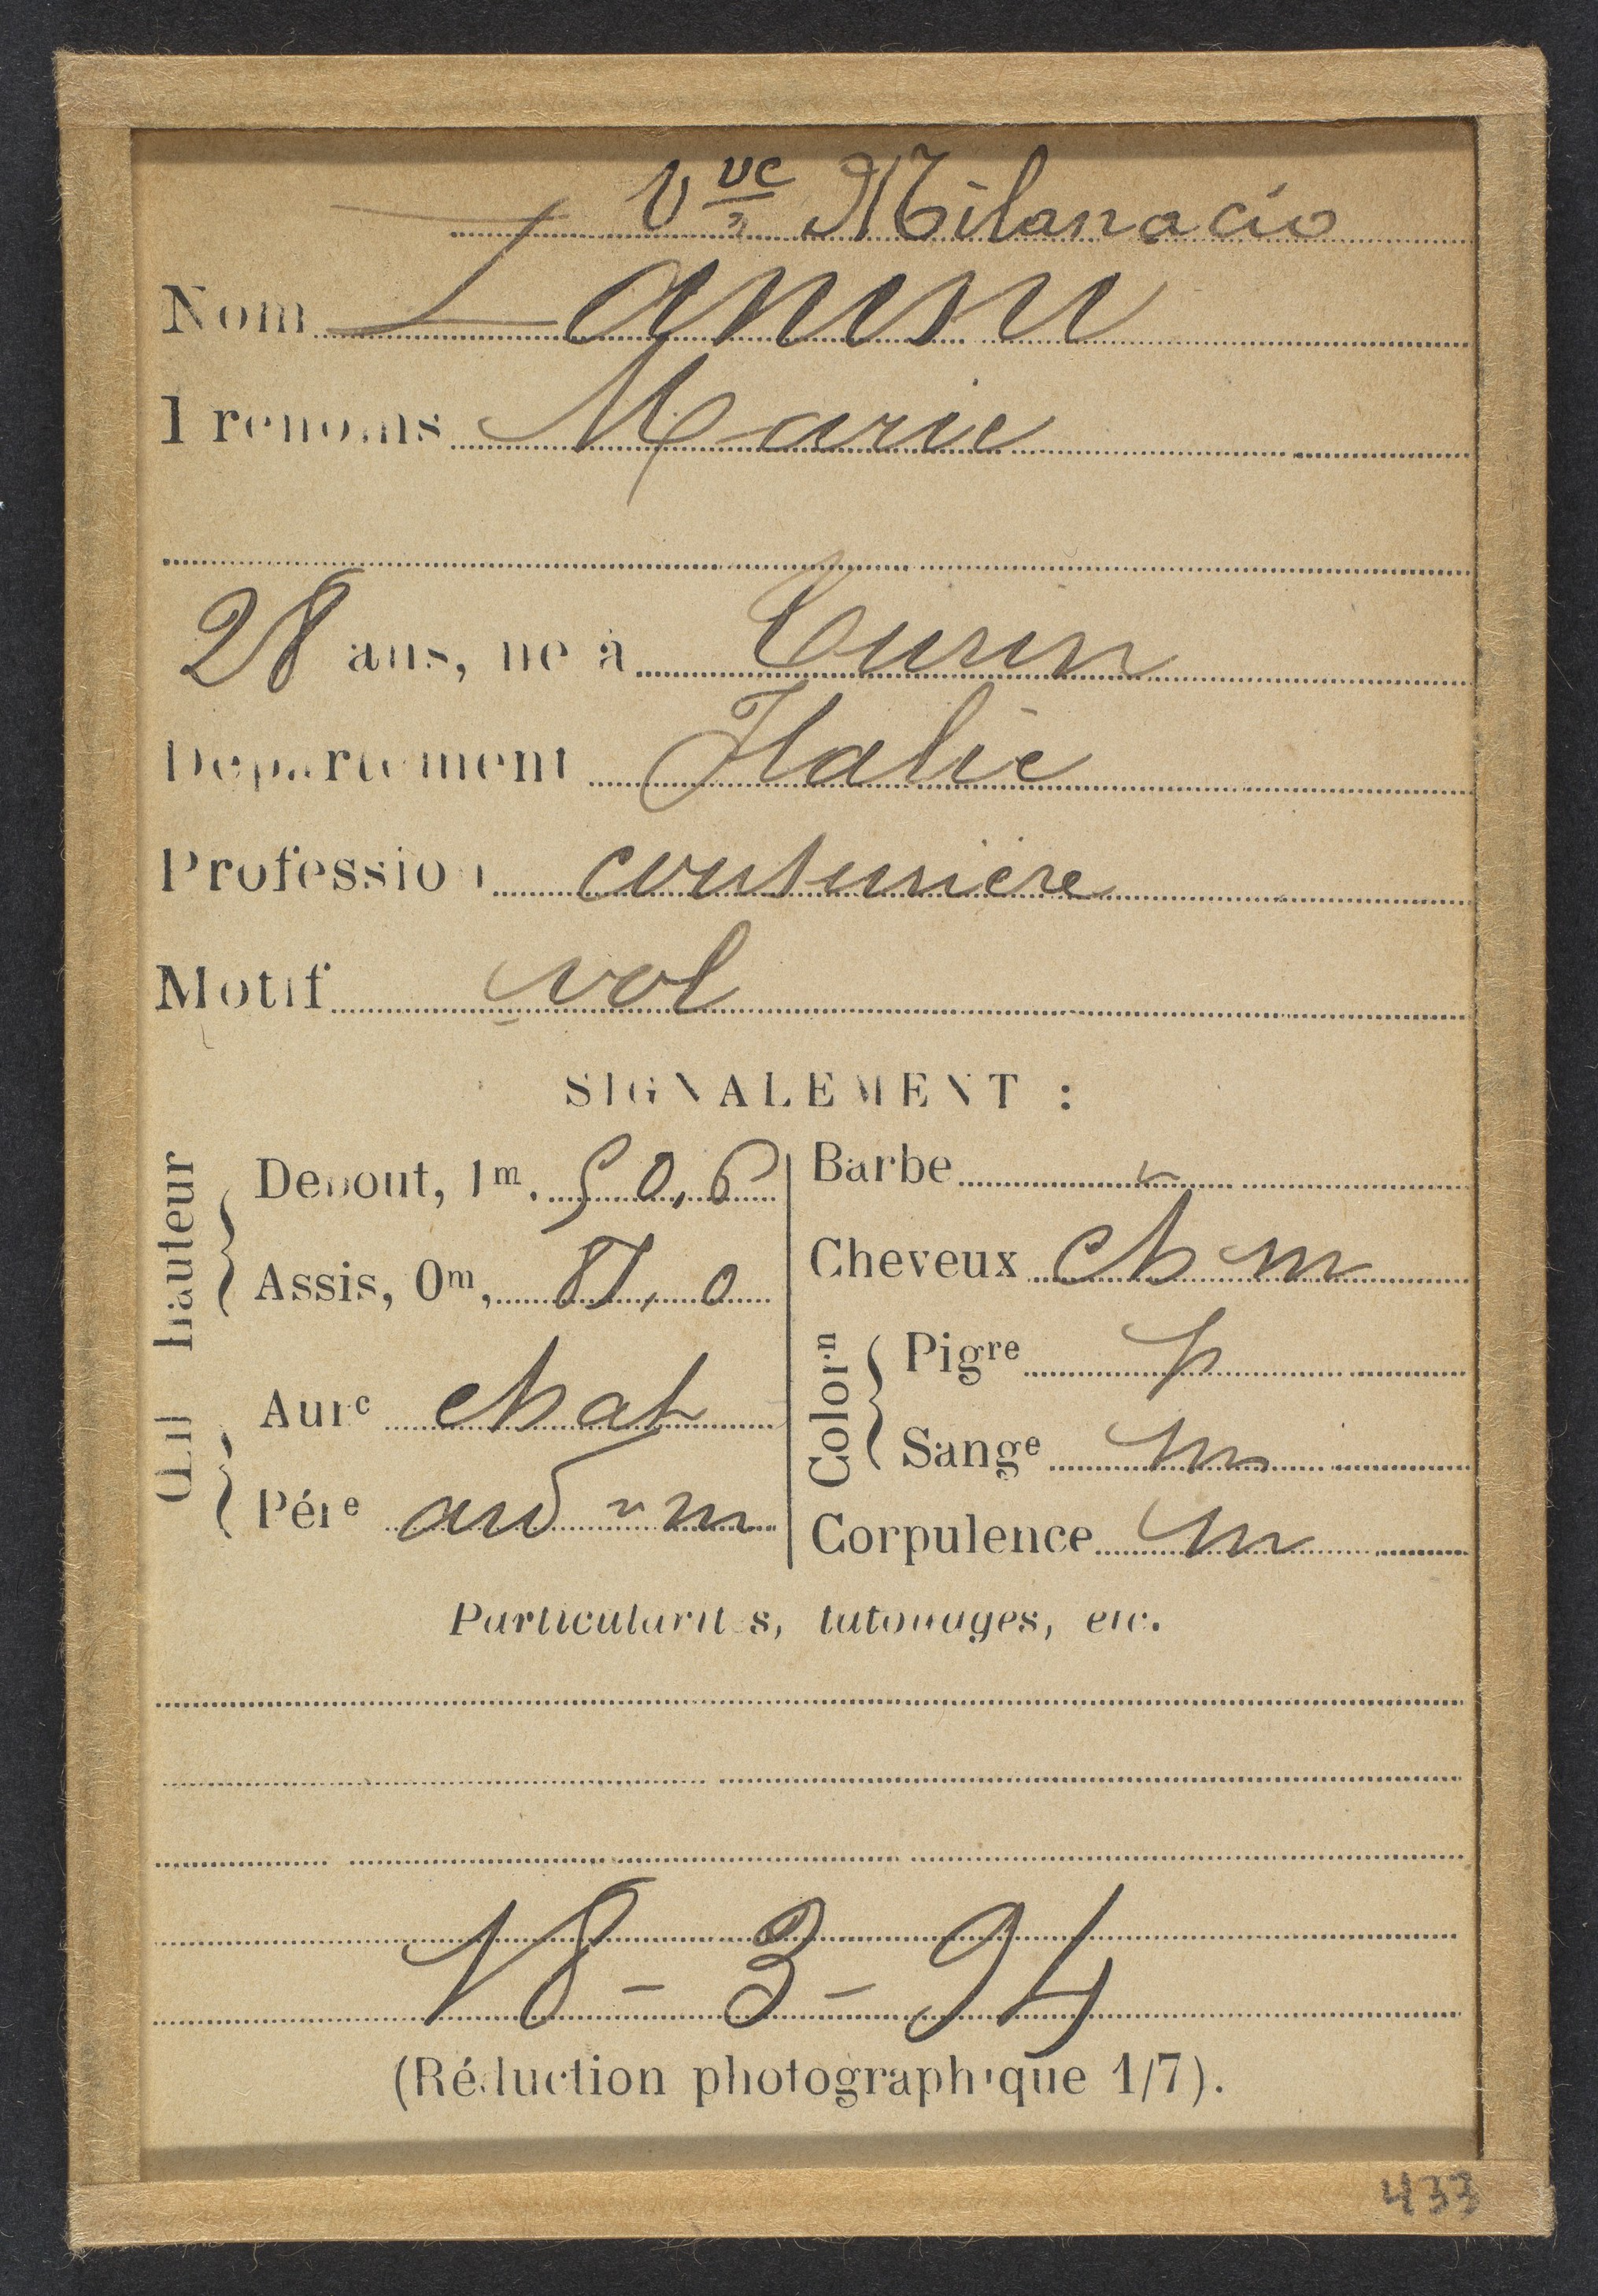 Vve Milanacio
Nom Zanini
Prénoms Marie
28 ans, né à Turin
Département Italie
Profession couturière
Motif vol
SIGNALEMENT :
hauteur
Debout, 1m, 50,6
Assis, 0m, 87,0
Œil
Aure chat
Pére
Barbe
Cheveux ch m
Color.n
Pigre p
Sange m
Corpulence m
Particularités, tatouages, etc.
18-3-94
(Réduction photographique 1/7).
433